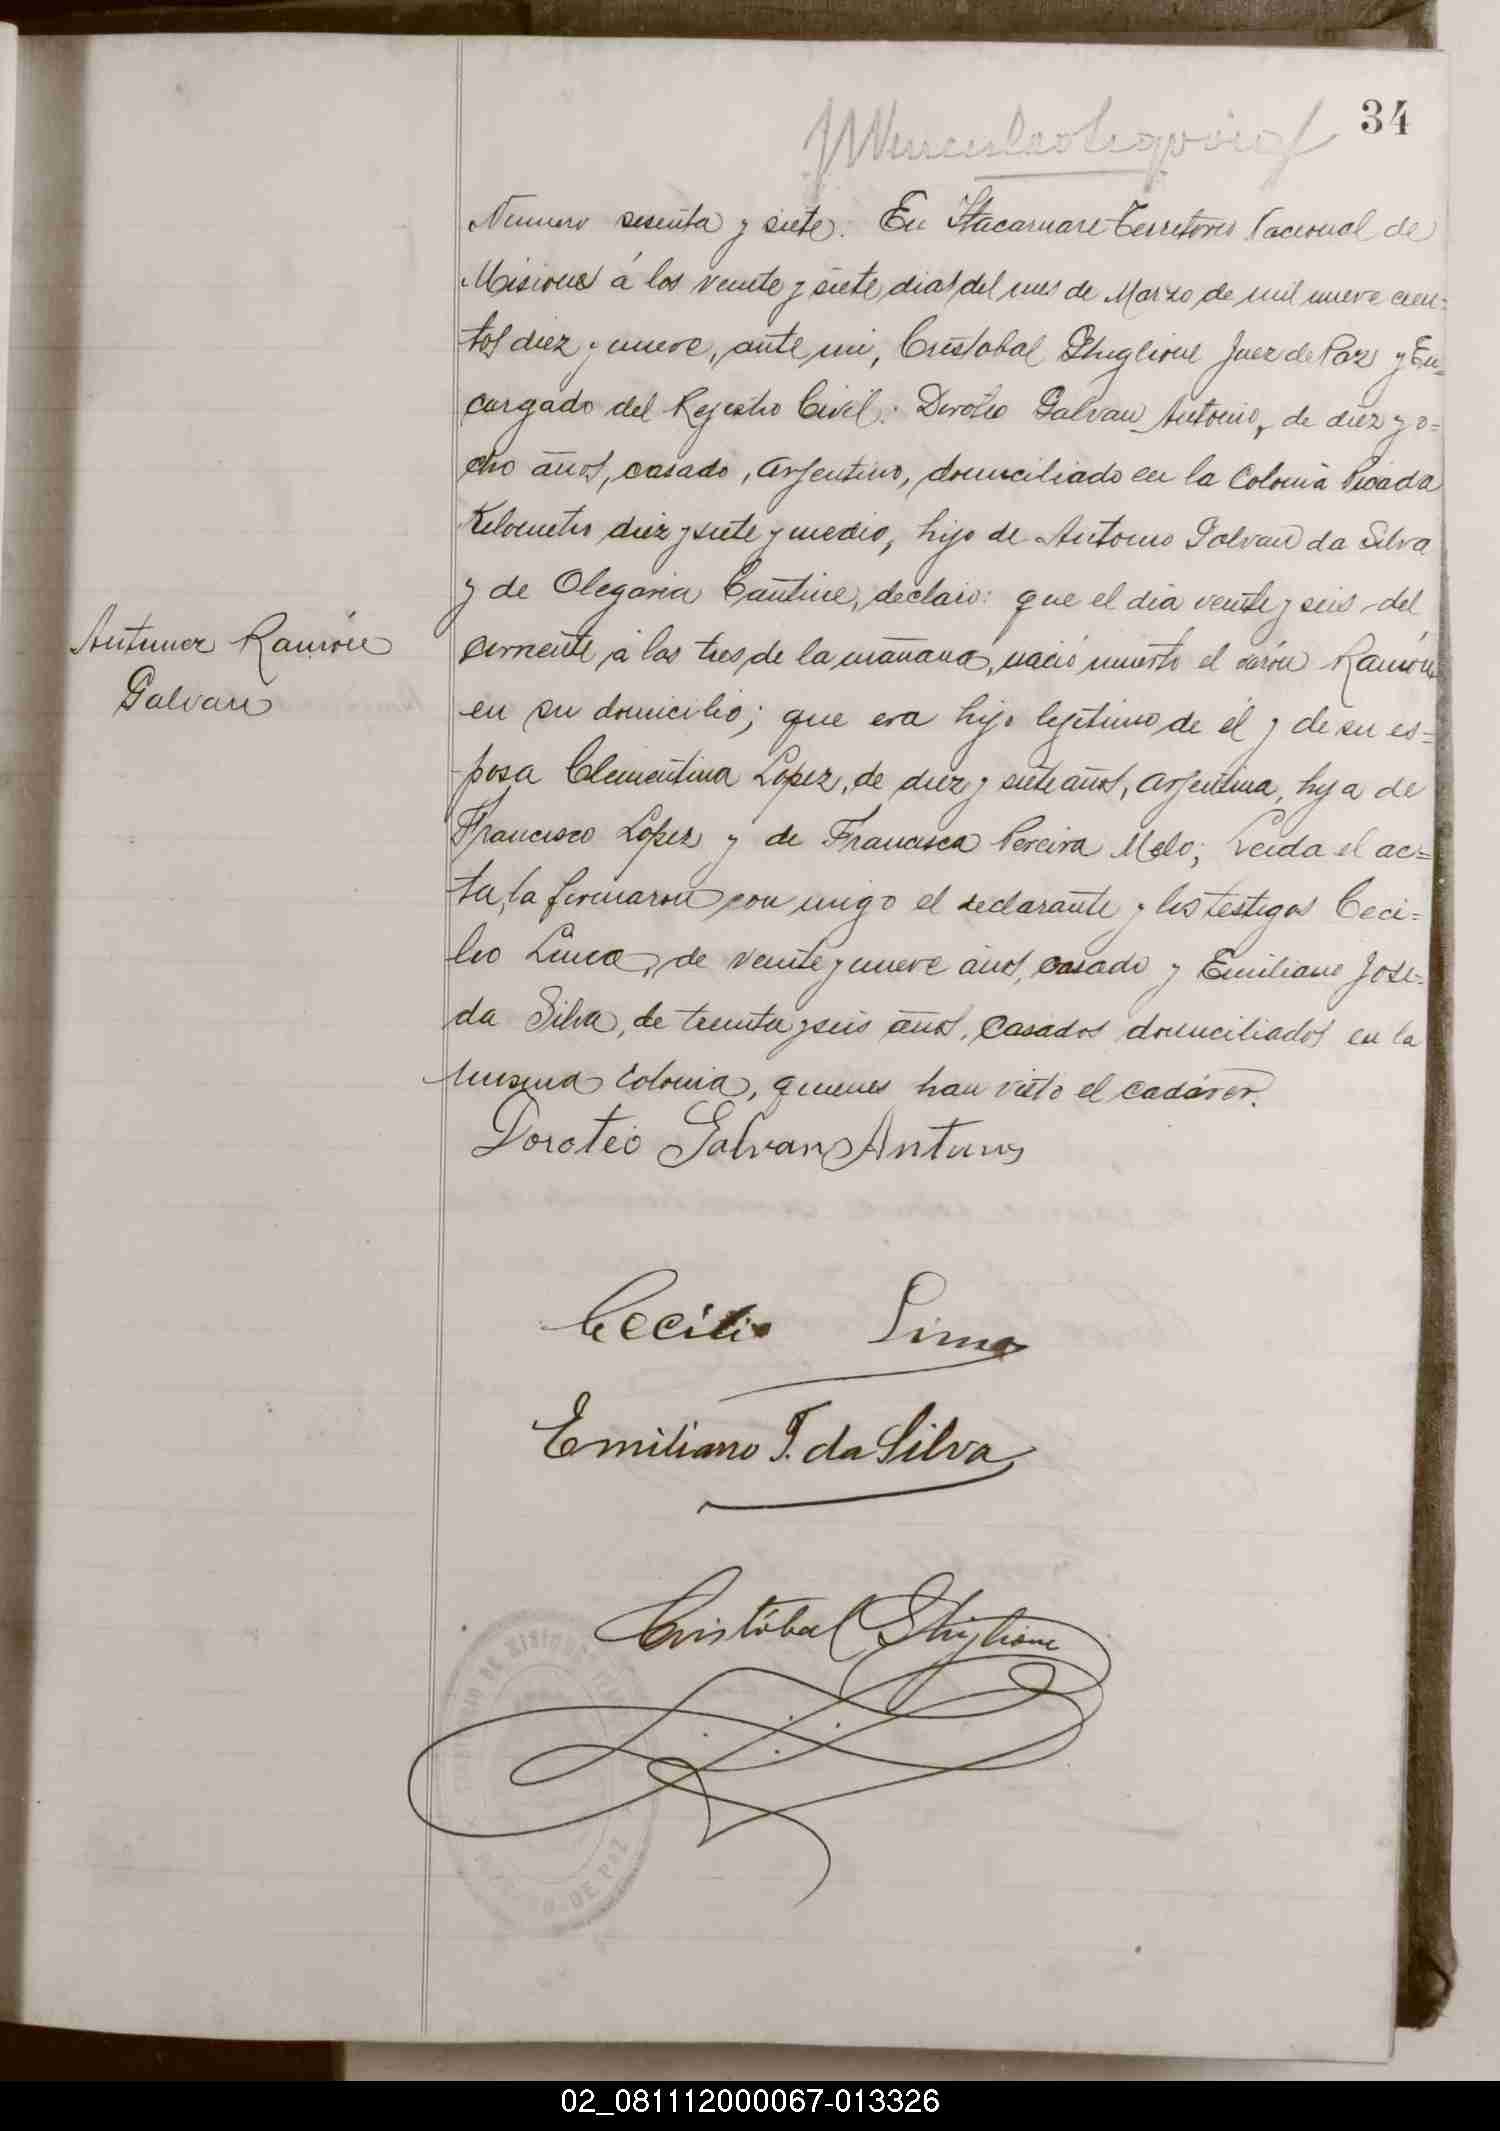 34
Numero sesenta y siete. En Itacaruaré Territorio Nacional de
Misiones á los veinte y siete dias del mes de Marzo de mil nueve cien=
tos diez y nueve, ante mi, Cristobal Ghiglione Juez de Paz y En=
cargado del Rejistro Civil: Doroteo Galvan Antonio, de diez y o=
cho años, casado, arjentino, domiciliado en la Colonia Picada
Kilometro diez y siete y medio, hijo de Antonio Galvan da Silva
y de Olegaria Cantine, declaró: que el dia veinte y seis del
Antunez Ramón
Galvan
corriente á las tres de la mañana, nació muerto el varón Ramón
en su domicilio; que era hijo lejitimo de él y de su es=
posa Clementina Lopez, de diez y siete años, arjentina, hija de
Francisco Lopez y de Francisca Pereira Melo; Leida el ac=
ta, la firmaron con migo el declarante y los testigos Ceci=
lio Lima, de veinte y nueve años, casado y Emiliano José
da Silva, de treinta y seis años, casados domiciliados en la
misma Colonia, quienes han visto el cadáver.
Doroteo Galvan Antunes
Cecilio Lima
Emiliano J. da Silva
Cristóbal Ghiglione
DE MISIONES
DE PAZ
02_081112000067-013326